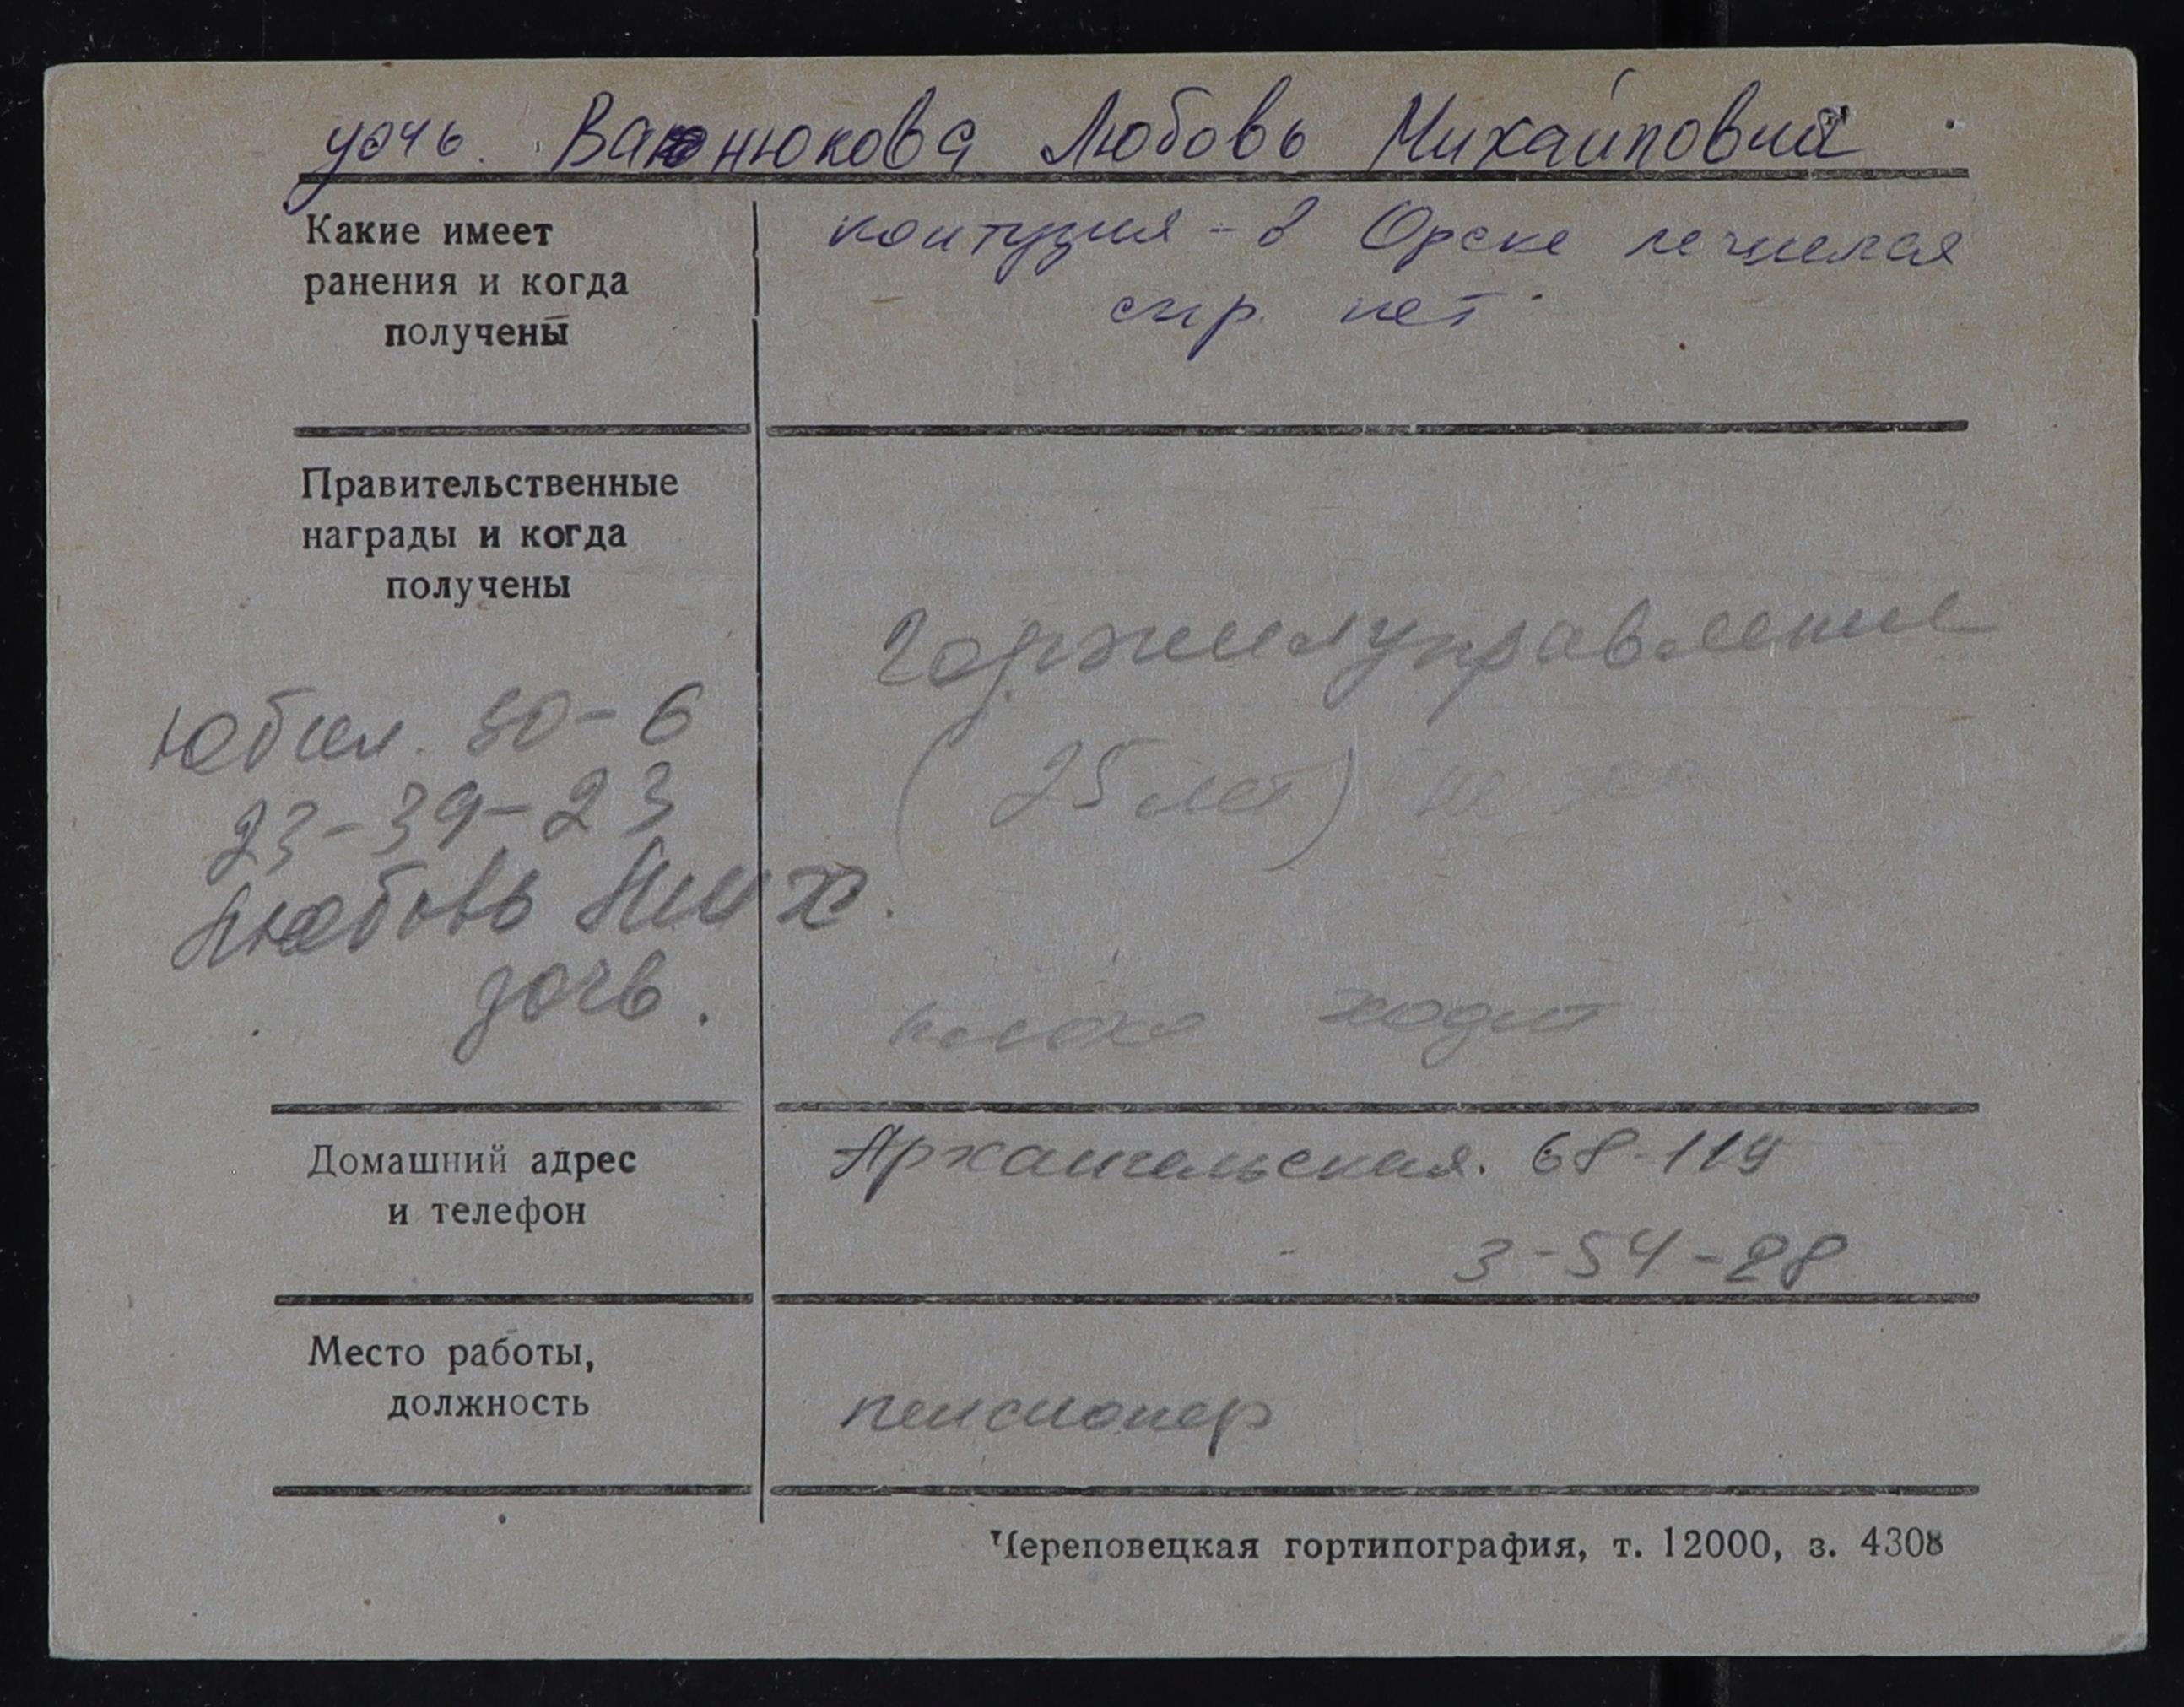 дочь. Ванюкова Любовь Михайловна
Какие имеет
ранения и когда
получены
контузия - в Орске лечился
спр. нет
Правительственные
награды и когда
получены
Горжилуправление
(25 лет) не
Юбил. 50-6
23-39-23
Любовь Мих.
дочь.
плохо ходит
Домашний адрес
и телефон
Архангельская. 68-119
3-54-28
Место работы,
должность
пенсионер
Череповецкая гортипография, т. 12000, з. 4308